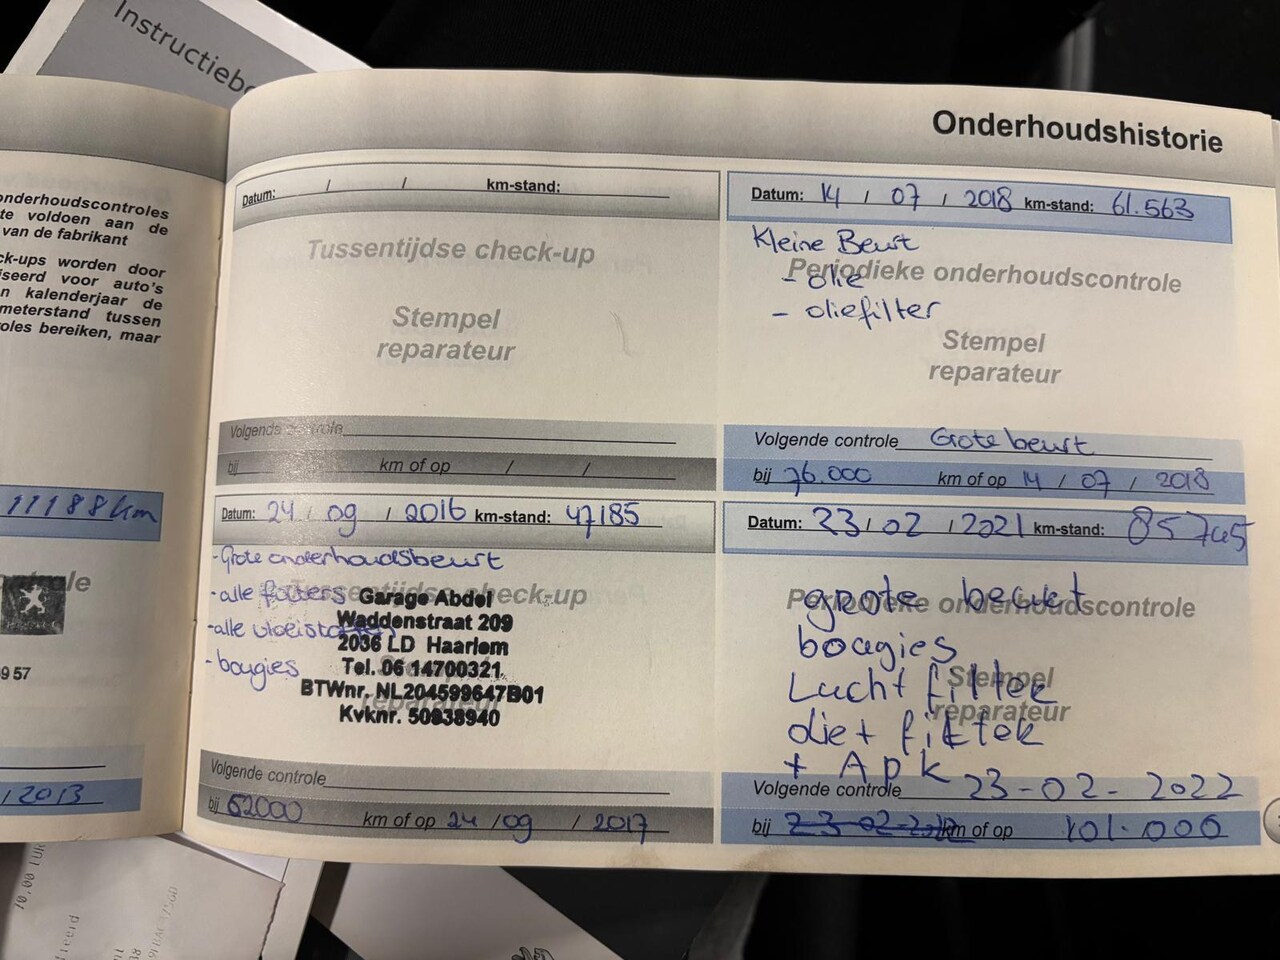 Instructiebo
onderhoudscontroles
te voldoen aan de
van de fabrikant
ck-ups worden door
iseerd voor auto's
n kalenderjaar de
meterstand tussen
oles bereiken, maar
11188km
ntrole
9 57
/ 2013
Onderhoudshistorie
Datum: / / km-stand:
Tussentijdse check-up
Stempel
reparateur
Volgende controle
bij km of op / /
Datum: 24 / 09 / 2016 km-stand: 47185
- Grote onderhoudsbeurt
Tussentijdse check-up
- alle filters
- alle vloeistoffen
- bougies
Garage Abdel
Waddenstraat 209
2036 LD Haarlem
Tel. 06 14700321
BTWnr. NL204599647B01
Kvknr. 50938940
reparateur
Volgende controle
bij 62000 km of op 24 / 09 / 2017
Datum: 14 / 07 / 2018 km-stand: 61.563
Kleine Beurt
Periodieke onderhoudscontrole
- olie
- oliefilter
Stempel
reparateur
Volgende controle Grote beurt
bij 76.000 km of op 14 / 07 / 2018
Datum: 23 / 02 / 2021 km-stand: 85745
Periodieke onderhoudscontrole
grote beurt
bougies
Stempel
Lucht filter
reparateur
olie + filter
+ Apk
Volgende controle 23-02-2022
bij km of op 101.000
10,00 EUR